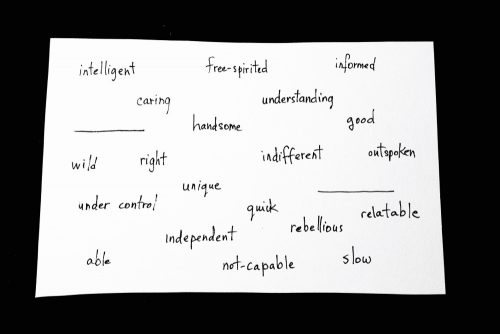 intelligent free-spirited informed
caring understanding
handsome good
wild right indifferent outspoken
unique
under control quick relatable
independent rebellious
able not-capable slow